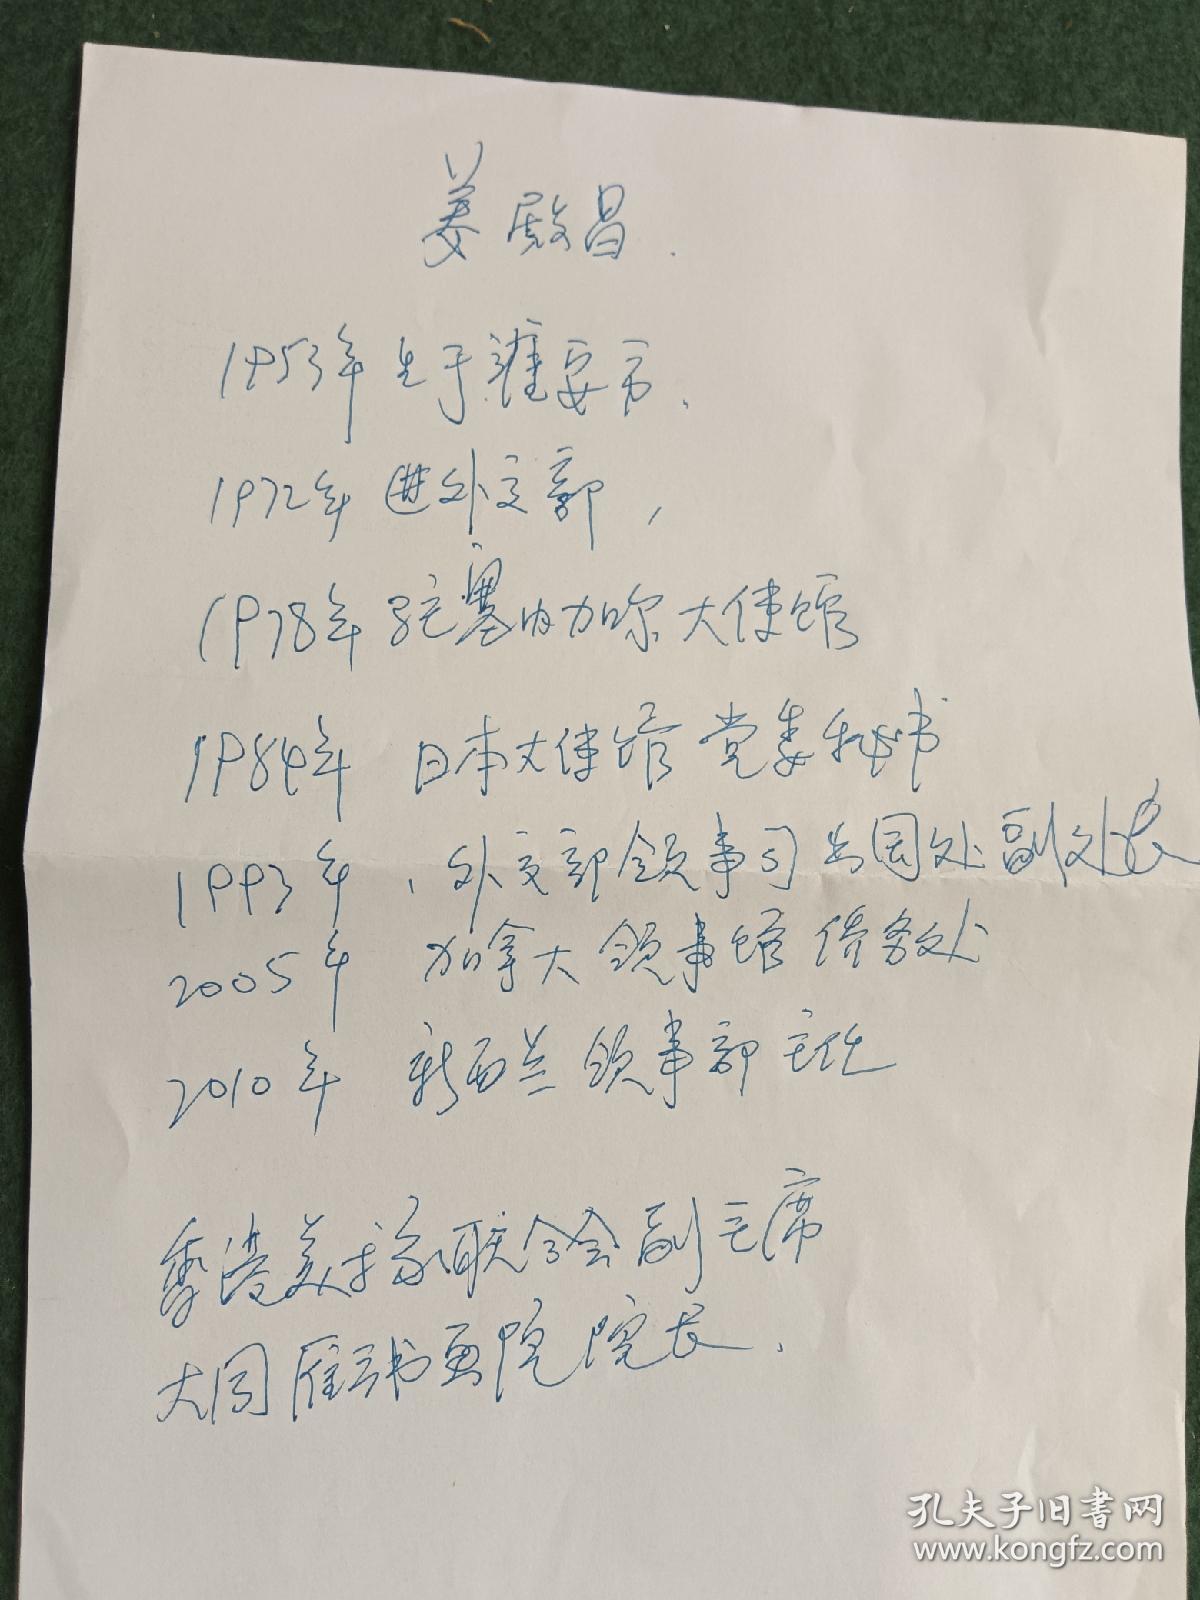 姜殿昌.
1953年生于淮安市、
1972年进外交部，
1978年驻塞内加尔大使馆
1984年 日本大使馆党委秘书
1993年、外交部领事司出国处副处长
2005年 加拿大领事馆侨务处
2010年 新西兰领事部主任
香港美术家联合会副主席
大同雁云书画院院长、
孔夫子旧书网
www.kongfz.com